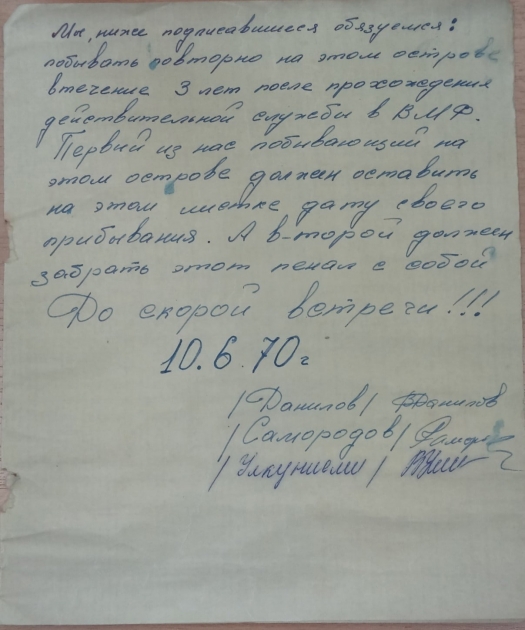 Мы, ниже подписавшиеся обязуемся:
побывать повторно на этом острове
втечение 3 лет после прохождения
действительной службы в ВМФ.
Первий из нас побывающий на
этом острове должен оставить
на этом листке дату своего
прибывания. А в-торой должен
забрать этот пенал с собой
До скорой встречи!!!
10.6.70г
/Данилов/ ВДанилов
/Самородов/
/Улкуниеми/